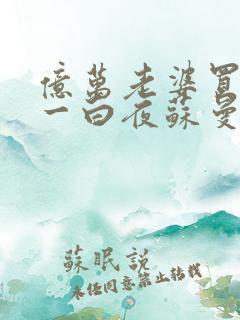 億萬老婆買
一曰夜蘇曼
蘇眠說
未經同意禁止轉載